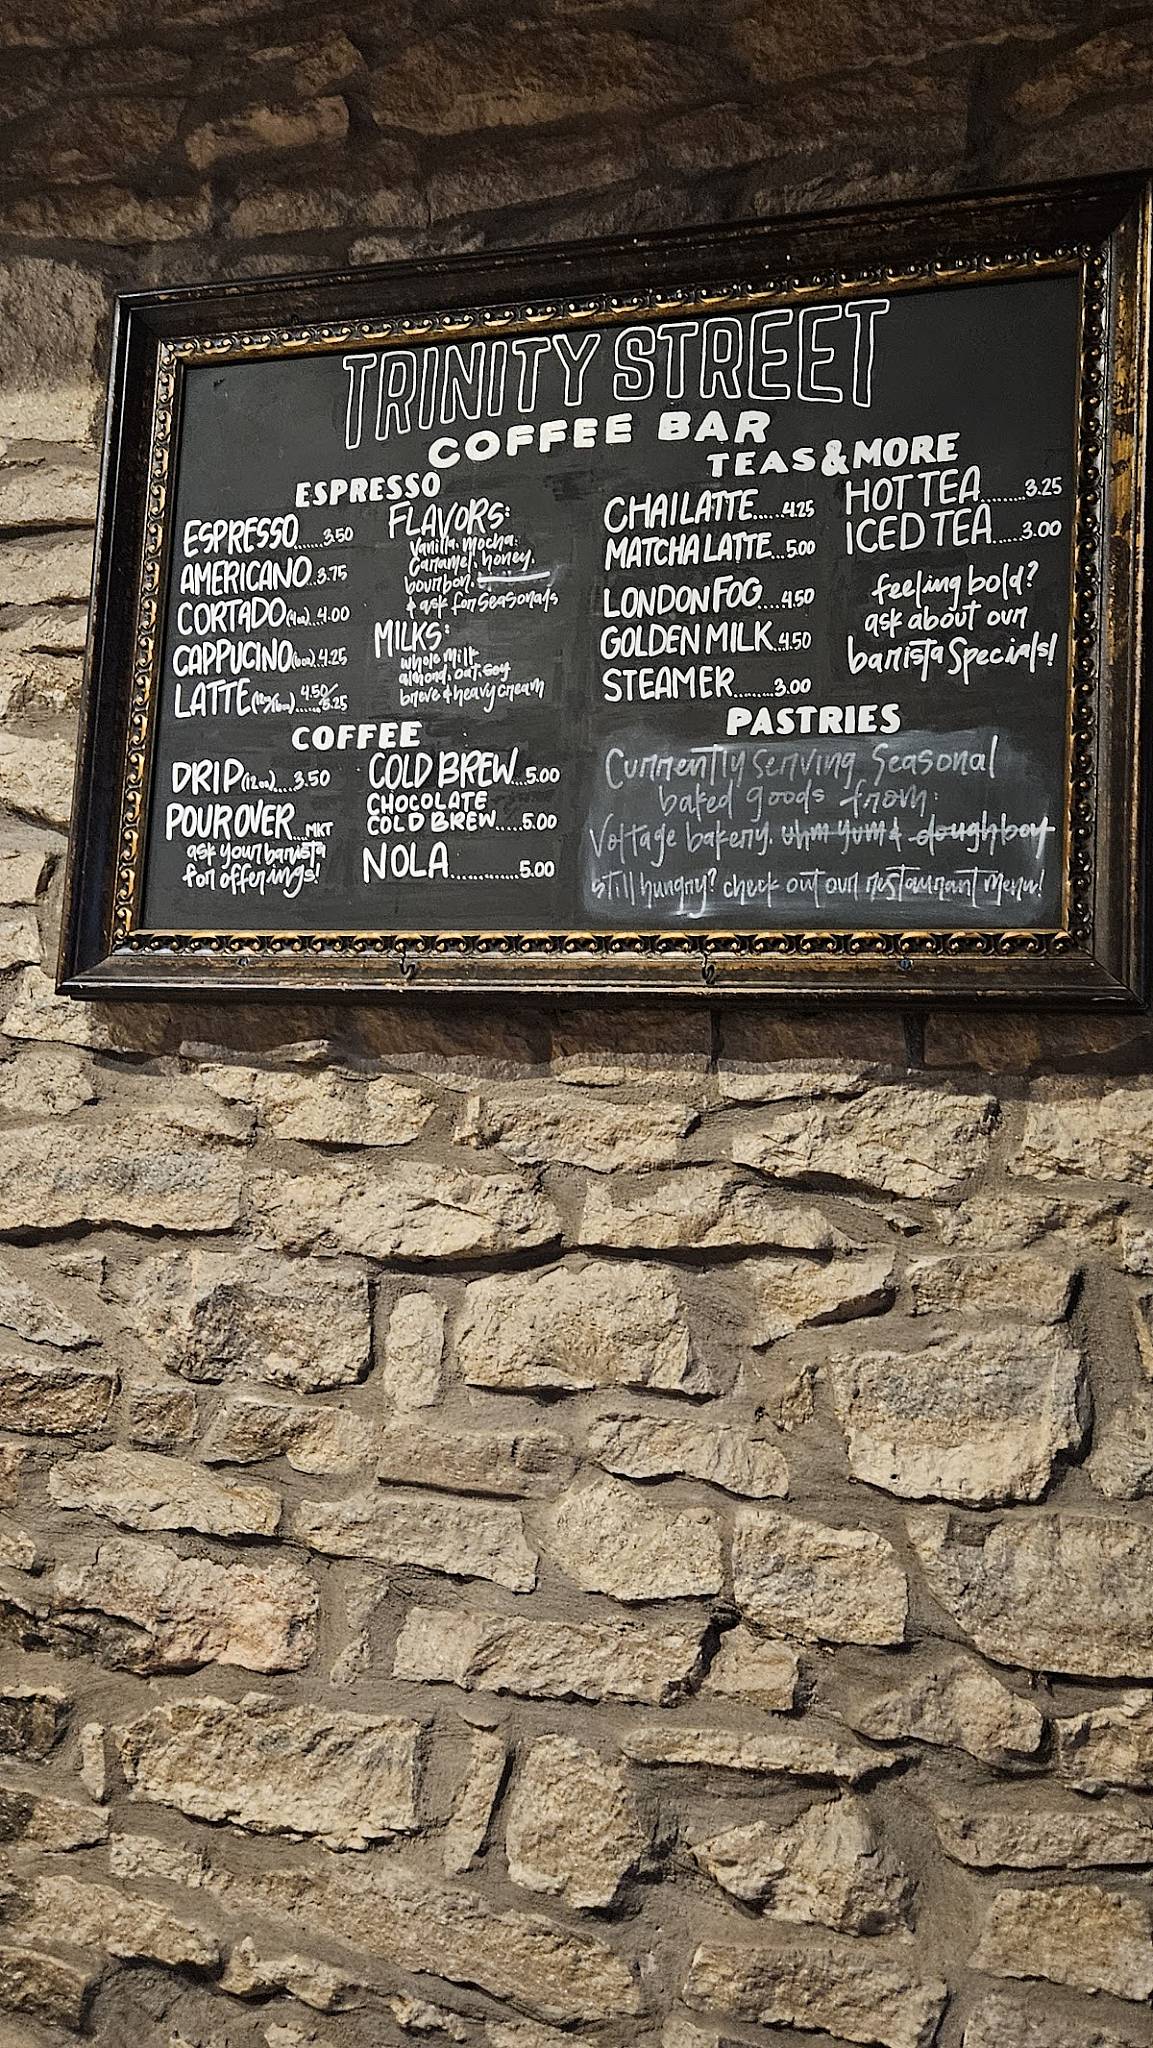 TRINITY STREET
COFFEE BAR
ESPRESSO
ESPRESSO.......3.50
AMERICANO..3.75
CORTADO(4oz)...4.00
CAPPUCINO(6oz)..4.25
LATTE(12/16oz)......4.50/5.25
FLAVORS:
Vanilla. mocha.
Caramel. honey.
bourbon.
& ask for Seasonals
MILKS:
whole milk
almond. oat. soy
breve & heavy cream
COFFEE
DRIP(12oz)....3.50
POUROVER...MKT
ask your barista
for offerings!
COLD BREW...5.00
CHOCOLATE
COLD BREW.....5.00
NOLA.............5.00
TEAS & MORE
CHAI LATTE.....4.25
MATCHA LATTE...5.00
LONDON FOG....4.50
GOLDEN MILK..4.50
STEAMER.........3.00
HOT TEA........3.25
ICED TEA.....3.00
feeling bold?
ask about our
barista Specials!
PASTRIES
Currently serving Seasonal
baked goods from:
Voltage bakery. uhm yum & doughboy
still hungry? check out our restaurant menu!